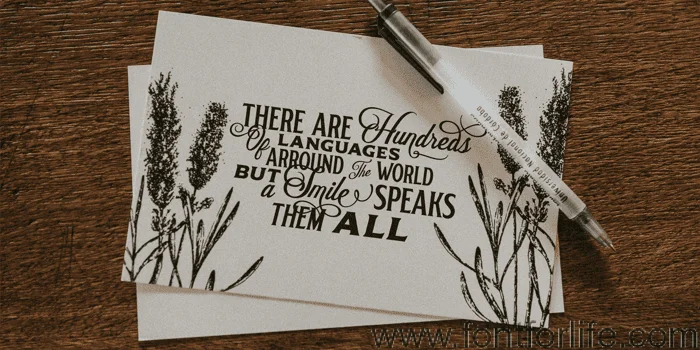 THERE ARE Hundreds
Of LANGUAGES
ARROUND The WORLD
BUT a Smile SPEAKS
THEM ALL
Universidad Nacional de Córdoba
www.fontforlife.com